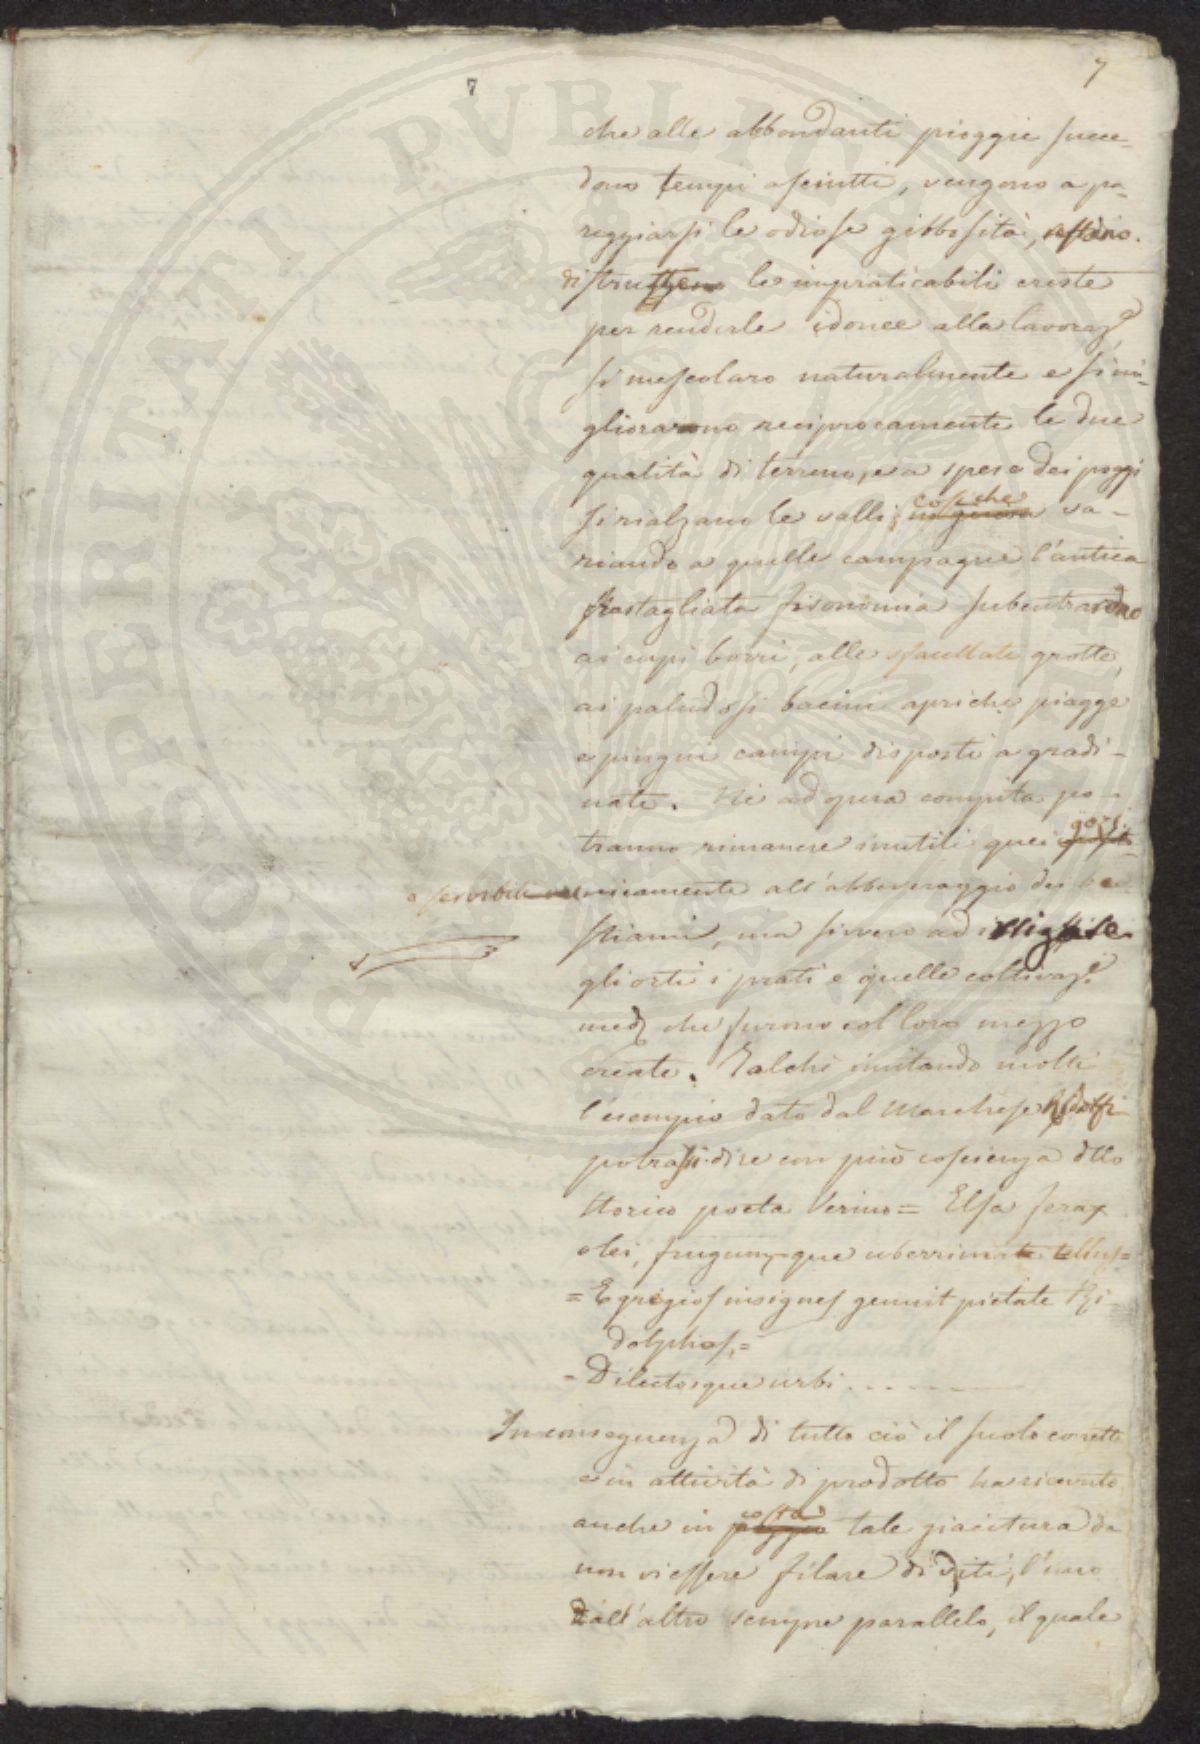 7
7
che alle abbondanti pioggie succe-
dono tempi asciutti, vengono a pa-
reggiarsi le odiose gibbosità,
le impraticabili creste
per renderle idonee alla lavoraz.e
si mescolano naturalmente e si mi-
gliorarono reciprocamente le due
qualità di terreno, e a spese dei poggi
si rialzano le valli; cosiche va-
riando a quelle campagne l'antica
frastagliata fisonomia subentrarono
ai cupi borri, alle sfaldate grotte,
ai paludosi bacini apriche piagge
e pingui campi disposti a gradi-
nate. Nè ad opera compita po-
tranno rimanere inutili quei gozzi
o servibili unicamente all'abbeveraggio dei be-
stiami, ma sivvero ad irrigare
gli orti i prati e quelle coltivaz.i
med.e che furono col loro mezzo
create. Talchè imitando molti
l'esempio dato dal Marchese Ridolfi
potrassi dire con più coscienza dello
storico poeta Verino = Elsa ferax
olei, frugumque uberrima tellus =
= Egregios insignes genuit pietate Ri-
dolphos, =
= Dilectosque urbi . . . . .
In conseguenza di tutto ciò il suolo corretto
e in attività di prodotto ha ricevuto
anche in costa poggio tale giacitura da
non vi essere filare di viti, l'uno
dall'altro sempre parallelo, il quale
PROSPERITATI PVBLICAE